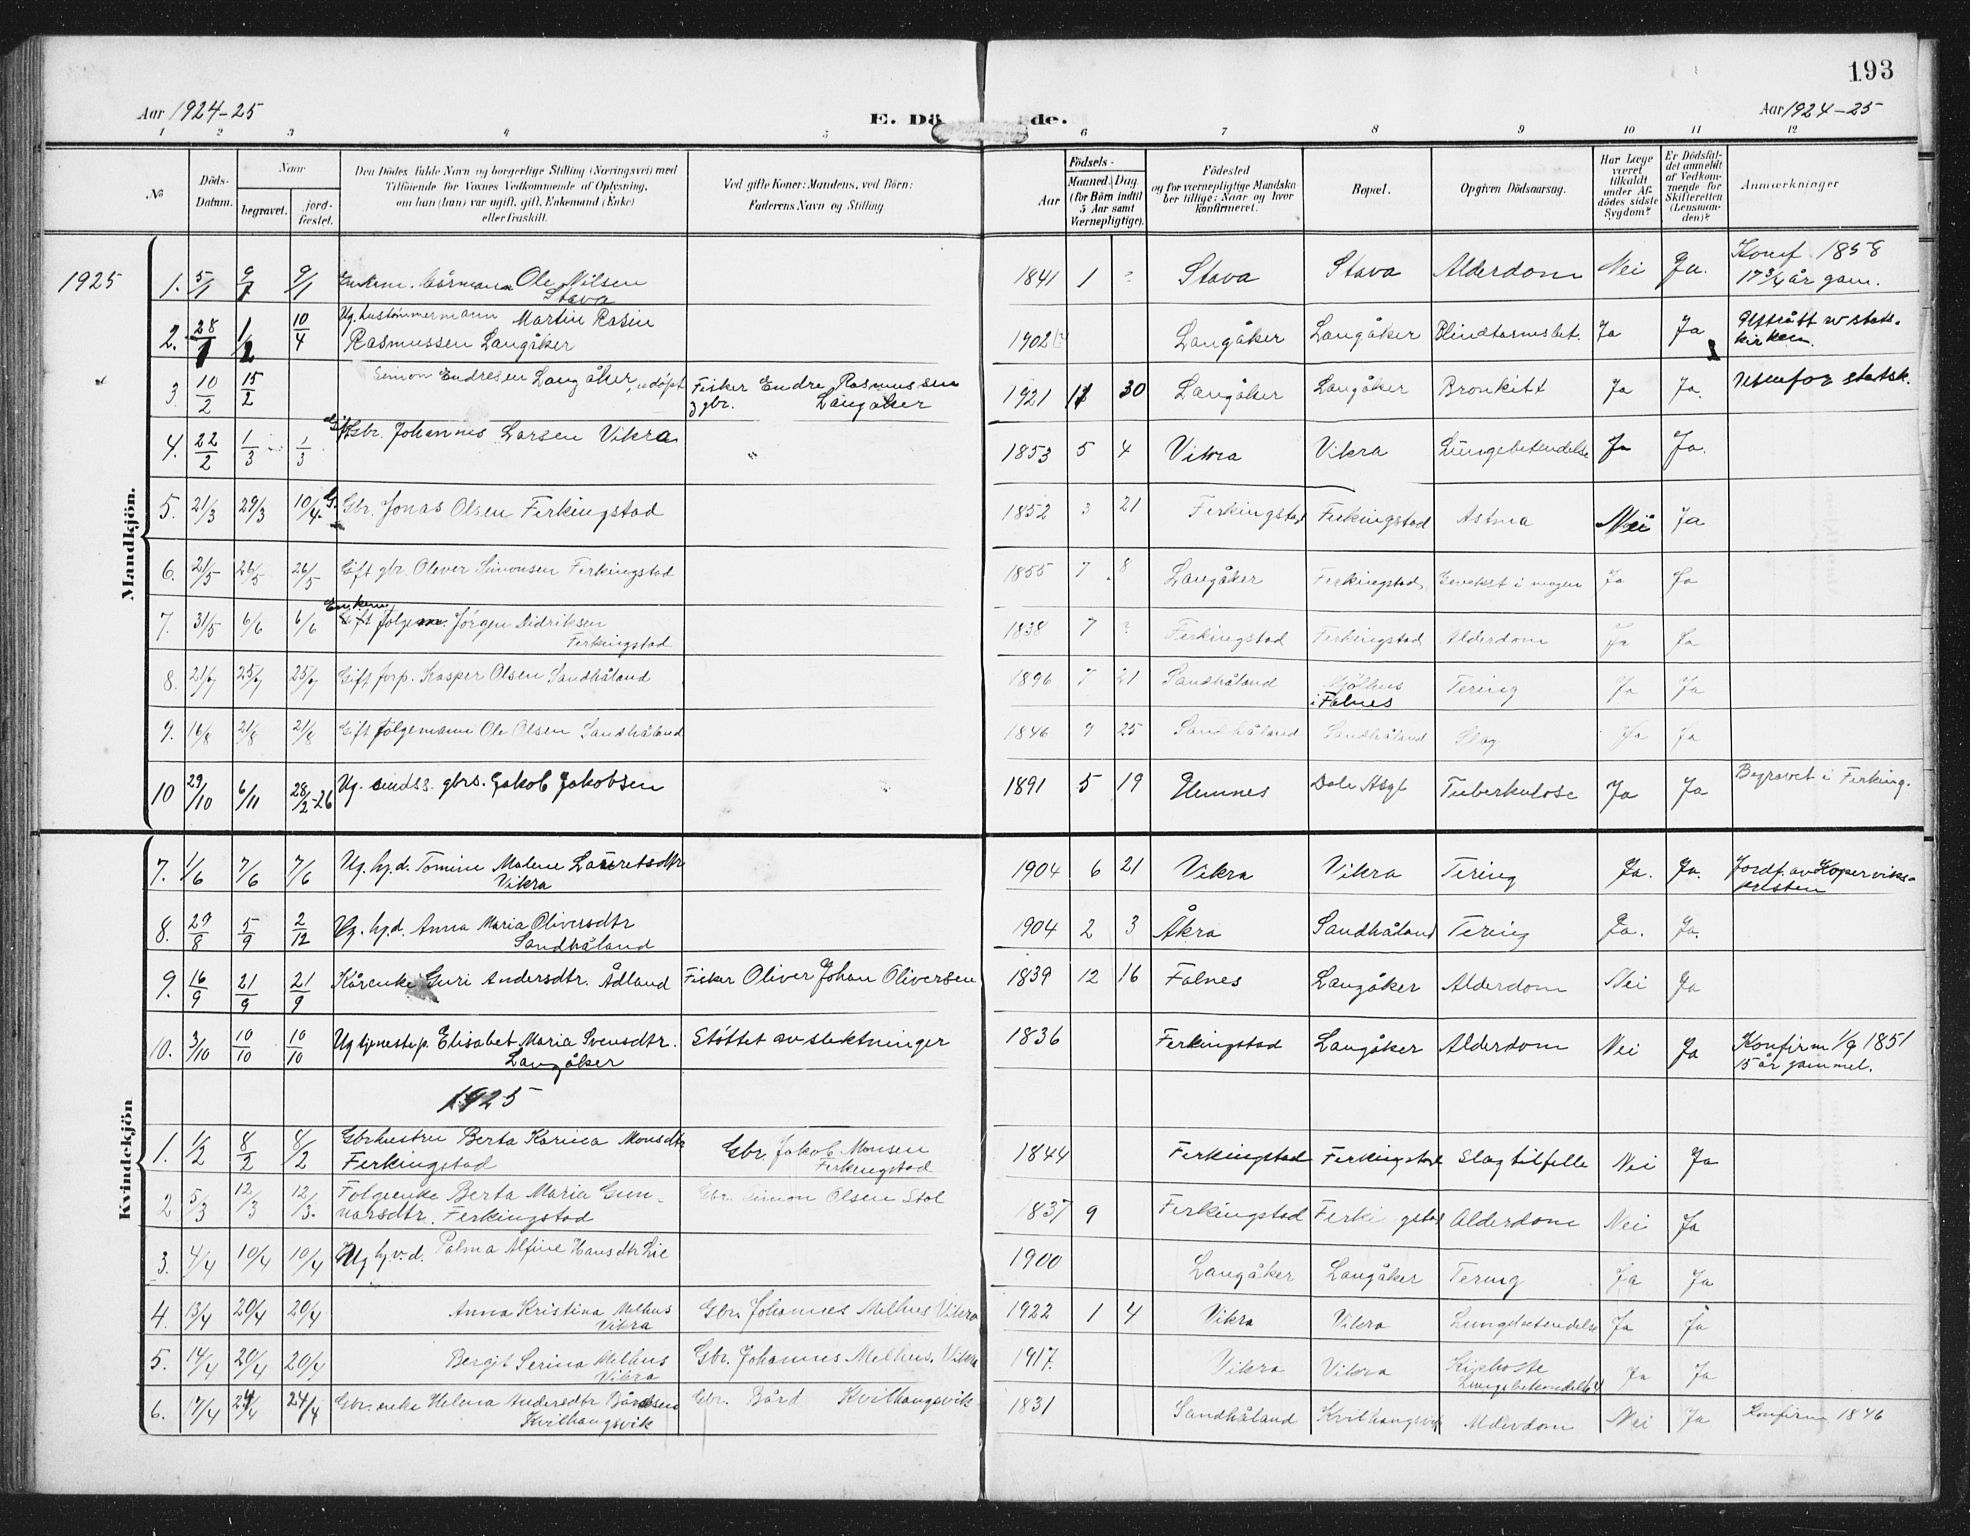 193
Aar 1924-25
E. Dö de.
Aar 1924-25
1 2 3 4 5 6 7 8 9 10 11 12
No
Döds-Datum.
Naar
begravet.
jord-fæstet.
Den Dödes fulde Navn og borgerlige Stilling (Næringsvei) med
Tilföiende for Voxnes Vedkommende af Oplysning,
om han (hun) var ugift, gift, Enkemand (Enke)
eller fraskilt.
Ved gifte Koner: Mandens, ved Börn:
Faderens Navn og Stilling
Födsels-
Aar
Maaned. Dag
(for Börn indtil
5 Aar samt
Værnepligtige).
Födested
og for værnepligtige Mandska-
ber tillige: Naar og hvor
konfirmeret.
Bopæl.
Opgiven Dödsaarsag.
Har Læge
været
tilkaldt
under Af-
dödes sidste
Sygdom?
Er Dödsfal-
det anmeldt
af Vedkom-
mende for
Skifteretten
(Lensman-
den)?
Anmærkninger
Mandkjön.
1925
1. 5/1 9/1 9/1 Enkem. Ole Nilsen Stava 1841 1 ? Stava Stava Alderdom Nei Ja. Konf. 1858
17 3/4 år gam.
2. 28/1 1/2 10/4 Ug. hustømmermann Martin Rasin
Rasmussen Langåker 1902 Langåker Langåker Blindtarmsbet. Ja Ja Utträtt av stats-
kirken.
3 10/2 15/2 Simon Endresen Langåker, udøpt Fisker Endre Rasmussen
gbr. Langåker 1921 11 30 Langåker Langåker Bronkitt Ja Ja. Utenfor statsk.
4. 22/2 1/3 1/3 Gift Gbr. Johannes Larsen Vikra " 1853 5 4 Vikra Vikra Lungebetendelse Ja Ja.
5. 21/3 29/3 10/4. G. Gbr. Jonas Olsen Ferkingstad 1852 3 21 Ferkingstad Ferkingstad Astma Nei Ja
6. 21/5 26/5 26/5 Gift gbr. Olever Simonsen Ferkingstad 1855 7 8 Langåker Ferkingstad i magen Ja Ja
7. 31/5 6/6 6/6 Enkem. Gift følgem. Jörgen Didriksen
Ferkingstad 1838 7 ? Ferkingstad Ferkingstad Alderdom Ja Ja
8. 21/7 25/7 25/7 Gift forp. Kasper Olsen Sandhåland 1896 7 21 Sandhåland Mjølhus
i Falnes Tering Ja Ja
9. 16/8 21/8 21/8 Gift følgemann Ole Olsen Sandhåland 1846 9 25 Sandhåland Sandhåland Slag Ja Ja
10 29/10 6/11 28/2-26 Ug. sindss. gbrs. Jakob Jakobsen 1891 5 19 Hemnes Dale Asyl Tuberkulose Ja Ja Begravet i Ferking.
Kvindekjön
7. 1/6 7/6 7/6 Ug. hj.d. Tomine Malene Lauretsdtr
Vikra 1904 6 21 Vikra Vikra Tering Ja. Ja. Jordf. av Koperviks-
presten
8. 29/8 5/9 2/12 Ug. hj.d. Anna Maria Oliversdtr
Sandhåland 1904 2 3 Åkra Sandhåland Tering Ja. Ja.
9. 16/9 21/9 21/9 Kårenke Guri Andersdtr. Ådland Fisker Oliver Johan Oliversen 1839 12 16 Falnes Langåker Alderdom Nei Ja
10. 3/10 10/10 10/10 Ug tjenestep. Elisabet Maria Svensdtr.
Langåker Støttet av slektninger 1836 Ferkingstad Langåker Alderdom Nei Ja Konfirm 1/9 1851
15 år gammel.
1925
1. 1/2 8/2 8/2 Gbrhustru Berta Karina Monsdtr
Ferkingstad Gbr. Jakob Monsen
Ferkingstad 1844 Ferkingstad Ferkingstad Slagtilfelle Nei Ja
2 5/3 12/3 12/3. Følgeenke Berta Maria Gun-
narsdtr. Ferkingstad Gbr. Simon Olsen Stol 1837 9 Ferkingstad Ferkingstad Alderdom Nei Ja
3. 4/4 10/4 10/4 Ug hj.v.d. Palma Alfine Hansdtr Lie 1900 Langåker Langåker Tering Ja Ja
4. 13/4 20/4 20/4 Anna Kristina Melhus
Vikra Gbr. Johannes Melhus Vikra 1922 1 4 Vikra Vikra Lungebetendelse Ja Ja
5. 14/4 20/4 20/4 Bergit Serina Melhus
Vikra Gbr. Johannes Melhus. Vikra 1917. Vikra Vikra Kighoste
Lungebetendelse Ja Ja
6. 17/4 24/4 24/4 Gbr. enke Helena Andersdtr Bårdsen
Kvilhaugsvik Gbr. Bård Kvilhaugsvik 1831 Sandhåland Kvilhaugsvik Alderdom Nei Ja Konfirm 1846